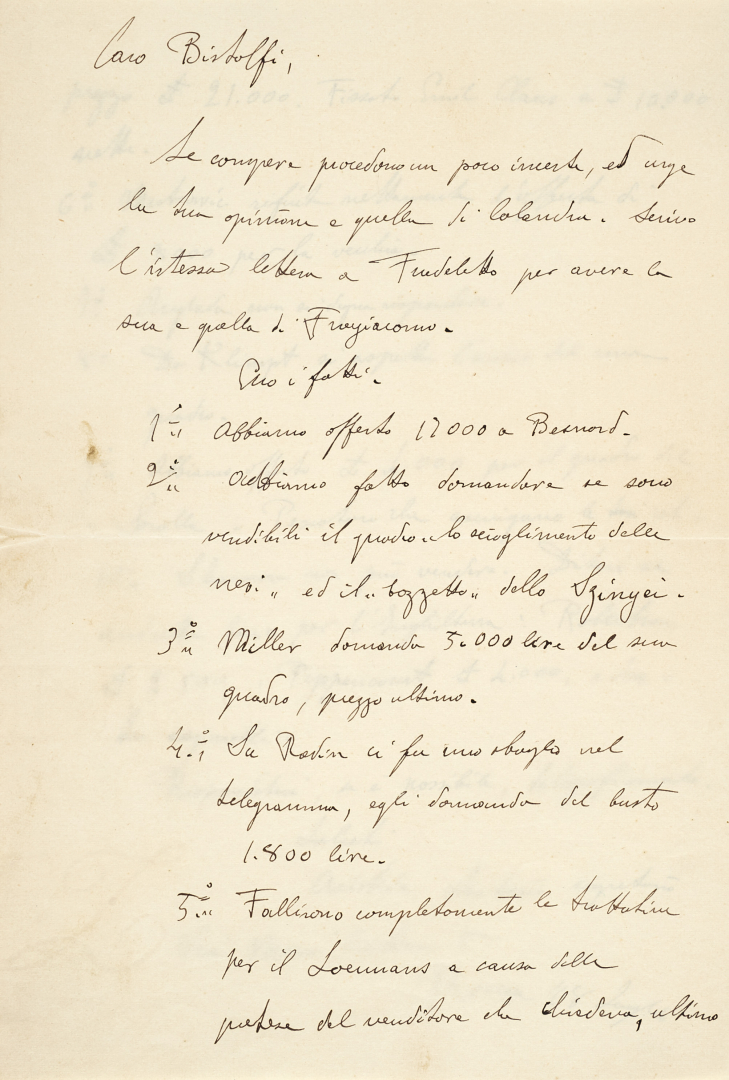 Caro Bistolfi,
Le compere procedono un poco incerte, ed urge
la tua opinione e quella di Calandra. Scrivo
l'istessa lettera a Fradeletto per avere la
sua e quella di Fragiacomo.
Ecco i fatti.
1° Abbiamo offerto 12000 a Besnard.
2° Abbiamo fatto domandare se sono
vendibili il quadro "lo scioglimento delle
nevi" ed il "bozzetto" dello Szinyei.
3° Miller domanda 5.000 lire del suo
quadro, prezzo ultimo.
4.° Su Rodin ci fu uno sbaglio nel
telegramma, egli domanda del busto
1.800 lire.
5° Fallirono completamente le trattative
per il a causa delle
pretese del venditore che chiedeva, ultimo